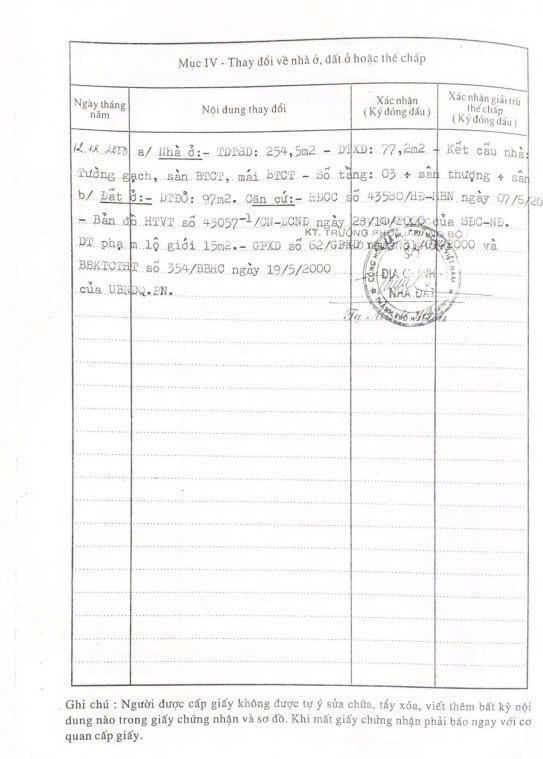 Mục IV - Thay đổi về nhà ở, đất ở hoặc thế chấp
Ngày tháng năm
Nội dung thay đổi
Xác nhận
( Ký đóng dấu )
Xác nhận giải trừ thế chấp
( Ký đóng dấu )
12.12.2000 a/ Nhà ở:- TDTSD: 254,5m2 - DTXD: 77,2m2 - Kết cấu nhà:
Tường gạch, sàn BTCT, mái BTCT - Số tầng: 03 + sân thượng + sân
b/ Đất ở:- DTĐỞ: 97m2. Căn cứ:- HĐCC số 43580/HĐ-MBN ngày 07/5/20
- Bản đồ HTVT số 43057-1/CN-ĐCNĐ ngày 28/10/2000 của SĐC-NĐ.
DT phạm lộ giới 15m2.- GPXD số 62/GPXD 2000 và
KT. TRƯỞNG
BBKTCTHT số 354/BBHC ngày 19/5/2000
của UBNDQ.PN.
SỞ
ĐỊA CHÍNH
NHÀ ĐẤT
Ghi chú : Người được cấp giấy không được tự ý sửa chữa, tẩy xóa, viết thêm bất kỳ nội
dung nào trong giấy chứng nhận và sơ đồ. Khi mất giấy chứng nhận phải báo ngay với cơ
quan cấp giấy.